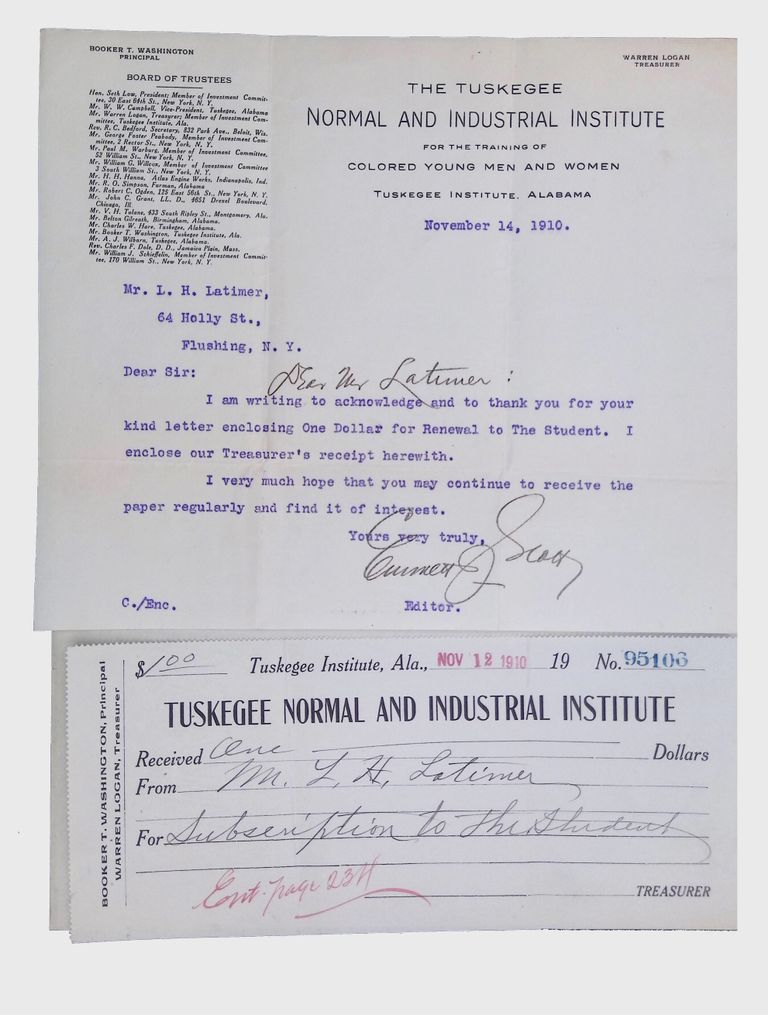 BOOKER T. WASHINGTON
PRINCIPAL
WARREN LOGAN
TREASURER
BOARD OF TRUSTEES
Hon. Seth Low, President; Member of Investment Commit-
tee, 30 East 64th St., New York, N. Y.
Mr. W. W. Campbell, Vice-President, Tuskegee, Alabama
Mr. Warren Logan, Treasurer; Member of Investment Com-
mittee, Tuskegee Institute, Ala.
Rev. R. C. Bedford, Secretary, 832 Park Ave., Beloit, Wis.
Mr. George Foster Peabody, Member of Investment Com-
mittee, 2 Rector St., New York, N. Y.
Mr. Paul M. Warburg, Member of Investment Committee,
52 William St., New York, N. Y.
Mr. William G. Willcox, Member of Investment Committee
3 South William St., New York, N. Y.
Mr. H. H. Hanna, Atlas Engine Works, Indianapolis, Ind.
Mr. R. O. Simpson, Furman, Alabama
Mr. Robert C. Ogden, 125 East 56th St., New York, N. Y.
Mr. John C. Grant, LL. D., 4651 Drexel Boulevard,
Chicago, Ill
Mr. V. H. Tulane, 433 South Ripley St., Montgomery, Ala.
Mr. Belton Gilreath, Birmingham, Alabama.
Mr. Charles W. Hare, Tuskegee, Alabama.
Mr. Booker T. Washington, Tuskegee Institute, Ala.
Mr. A. J. Wilborn, Tuskegee, Alabama.
Rev. Charles F. Dole, D. D., Jamaica Plain, Mass.
Mr. William J. Schieffelin, Member of Investment Commit-
tee, 170 William St., New York, N. Y.
THE TUSKEGEE
NORMAL AND INDUSTRIAL INSTITUTE
FOR THE TRAINING OF
COLORED YOUNG MEN AND WOMEN
TUSKEGEE INSTITUTE, ALABAMA
November 14, 1910.
Mr. L. H. Latimer,
64 Holly St.,
Flushing, N. Y.
Dear Sir:
Dear Mr Latimer:
I am writing to acknowledge and to thank you for your
kind letter enclosing One Dollar for Renewal to The Student. I
enclose our Treasurer's receipt herewith.
I very much hope that you may continue to receive the
paper regularly and find it of interest.
Yours very truly,
Emmett J Scott
C./Enc. Editor.
BOOKER T. WASHINGTON, Principal
WARREN LOGAN, Treasurer
$1.00 Tuskegee Institute, Ala., NOV 12 1910 19 No. 95106
TUSKEGEE NORMAL AND INDUSTRIAL INSTITUTE
Received One Dollars
From Mr. L. H. Latimer
For Subscription to The Student
Ent. page 234
TREASURER